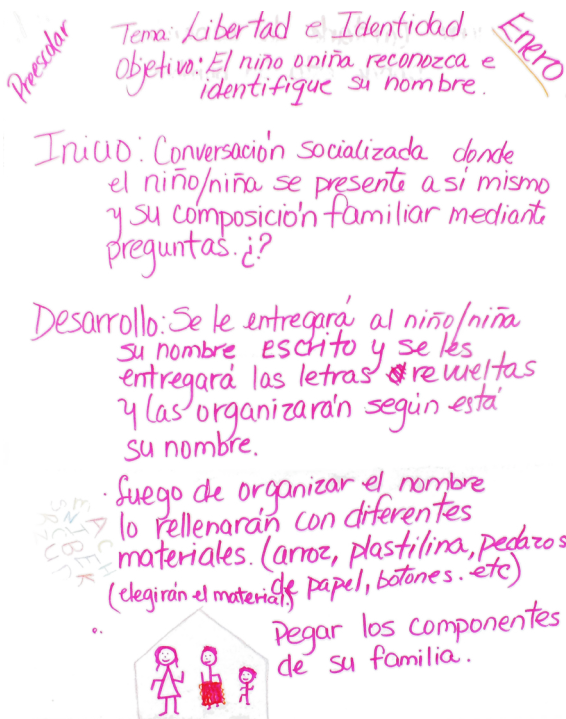 Preescolar
Tema: Libertad e Identidad
Enero
Objetivo: El niño o niña reconozca e
identifique su nombre.
Inicio: Conversación socializada donde
el niño/niña se presente a sí mismo
y su composición familiar mediante
preguntas. ¿?
Desarrollo: Se le entregará al niño/niña
su nombre escrito y se les
entregará las letras reweltas
y las organizarán según está
su nombre.
. Luego de organizar el nombre
lo rellenarán con diferentes
materiales. (arroz, plastilina, pedazos
de papel, botones. etc)
(elegirán el material.)
Pegar los componentes
de su familia.